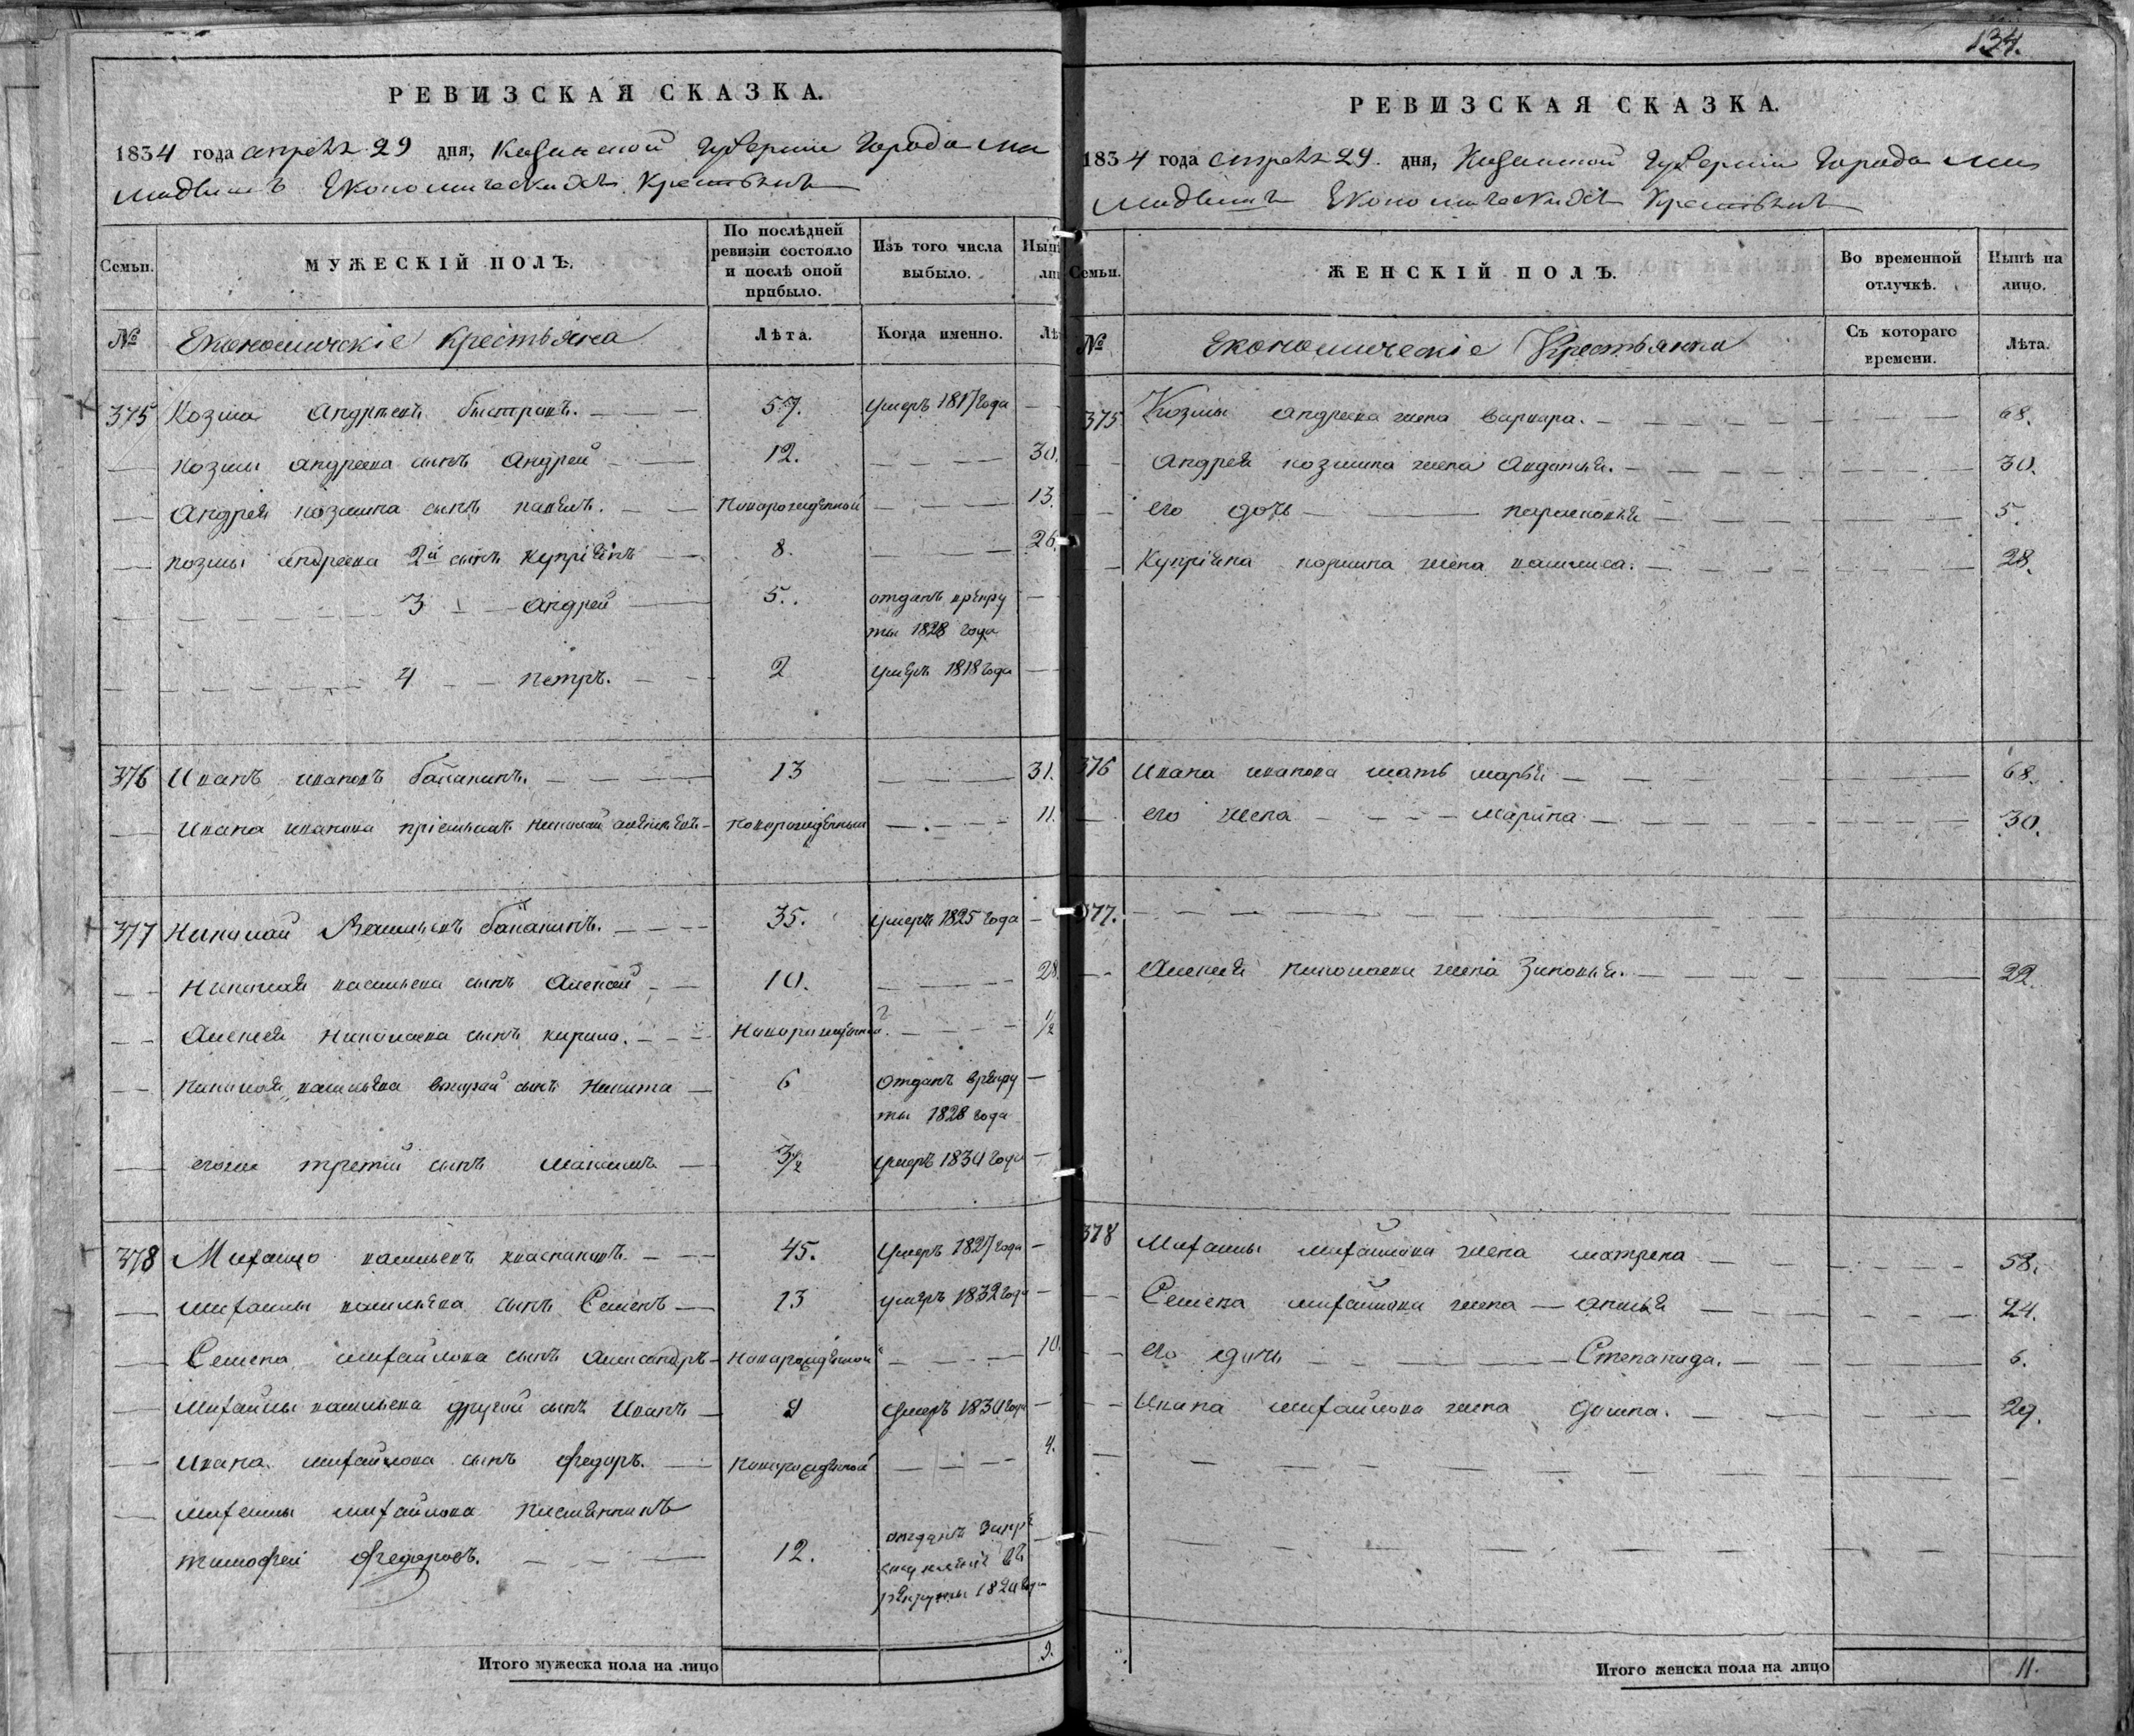 РЕВИЗСКАЯ СКАЗКА.
1834 года апреля 29 дня, Казанской Губернии Города Ма
мадышъ Економическихъ Крестьянъ
Семьи.
МУЖЕСКІЙ ПОЛЪ.
По послѣдней ревизіи состояло и послѣ оной прибыло.
Изъ того числа выбыло.
№
Економическіе Крестьяна
Лѣта.
Когда именно.
375 Козма Андреевъ быстровъ. 57. умеръ 1817 года
Козмы андреева сынъ Андрей 12. 30.
Андрея козмина сынъ павелъ. Новорожденной 13.
козмы андреева 2й сынъ Купріянъ 8. 26.
3 Андрей 5. отданъ врекру
ты 1828 года
4 петръ. 2 умеръ 1818 года
376 Иванъ ивановъ 13 31.
Ивана иванова пріемышъ Николай новорожденный 11.
377 Николай Васильевъ 35. умеръ 1825 года
Николая васильева сынъ Алексей 10. 28.
Алексея Николаева сынъ кирила. Новорожденной. ½
Николая васильева вторай сынъ Никита 6 Отданъ врекру
ты 1828 года
егоже третій сынъ Максимъ ½ умеръ 1830 года
378 Михайло васильевъ 45. умеръ 1827 года
михайлы васильева сынъ Семенъ 13 умеръ 1832 года
Семена михайлова сынъ Александръ Новорожденной 10.
Михайлы васильева другой сынъ Иванъ 9 умеръ 1830 года
Ивана михайлова сынъ Федоръ. Новорожденной 4.
михайлы михайлова племянникъ
тимофей Федоровъ. 12. отданъ
въ
рекруты 1820 года
Итого мужеска пола на лицо 9.
134.
РЕВИЗСКАЯ СКАЗКА.
1834 года апреля 29. дня, Казанской Губерніи Города Ма
мадышъ Економическихъ Крестьянъ
Семьи.
ЖЕНСКІЙ ПОЛЪ.
Во временной отлучкѣ.
Нынѣ на лицо.
№
Економическіе Крестьянки
Съ котораго времени.
Лѣта.
375 Козмы андреева жена варвара. 68.
Андрея козмина жена Авдотья. 30.
его дочь парасковья 5.
Купріяна козмина жена василиса. 28.
376 Ивана иванова мать марья 68.
его жена марина 30.
377.
Алексея николаева жена Зиновья. 22.
378 Михайлы михайлова жена матрена 58.
Семена михайлова жена 24.
его дочь Степанида. 6.
Ивана михайлова жена домна. 29.
Итого женска пола на лицо 11.